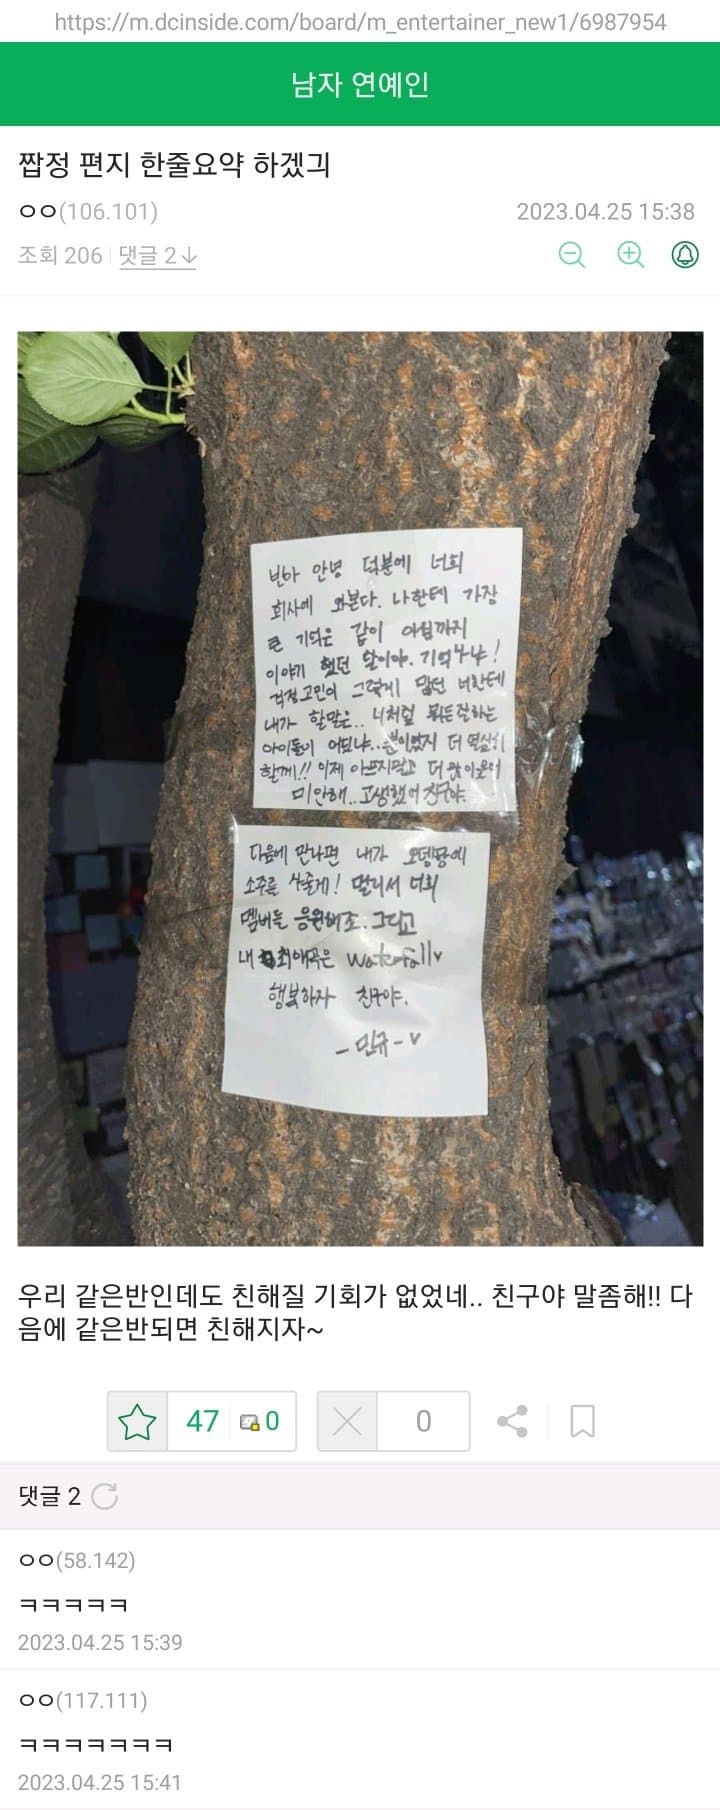 https://m.dcinside.com/board/m_entertainer_new1/6987954
남자 연예인
짭정 편지 한줄요약 하겠긔
ㅇㅇ(106.101)
2023.04.25 15:38
조회 206
댓글 2↓
빈아 안녕 덕분에 너희
회사에 와본다. 나한테 가장
큰 기억은 같이 아침까지
이야기 했던 날이야. 기억나냐!
걱정고민이 그렇게 많던 너한테
내가 할말은.. 너처럼 뭐든잘하는
아이돌이 어딨냐..뿐이었지 더 열심히
할께!! 이제 아프지말고 더 많이웃어
미안해.. 고생했어 친구야.
다음에 만나면 내가 오뎅탕에
소주를 사줄게! 멀리서 너희
멤버들 응원해줘. 그리고
내 최애곡은 waterfall♥
행복하자 친구야.
- 민규 - ♥
우리 같은반인데도 친해질 기회가 없었네.. 친구야 말좀해!! 다
음에 같은반되면 친해지자~
47
0
0
댓글 2
ㅇㅇ(58.142)
ㅋㅋㅋㅋㅋ
2023.04.25 15:39
ㅇㅇ(117.111)
ㅋㅋㅋㅋㅋㅋㅋ
2023.04.25 15:41